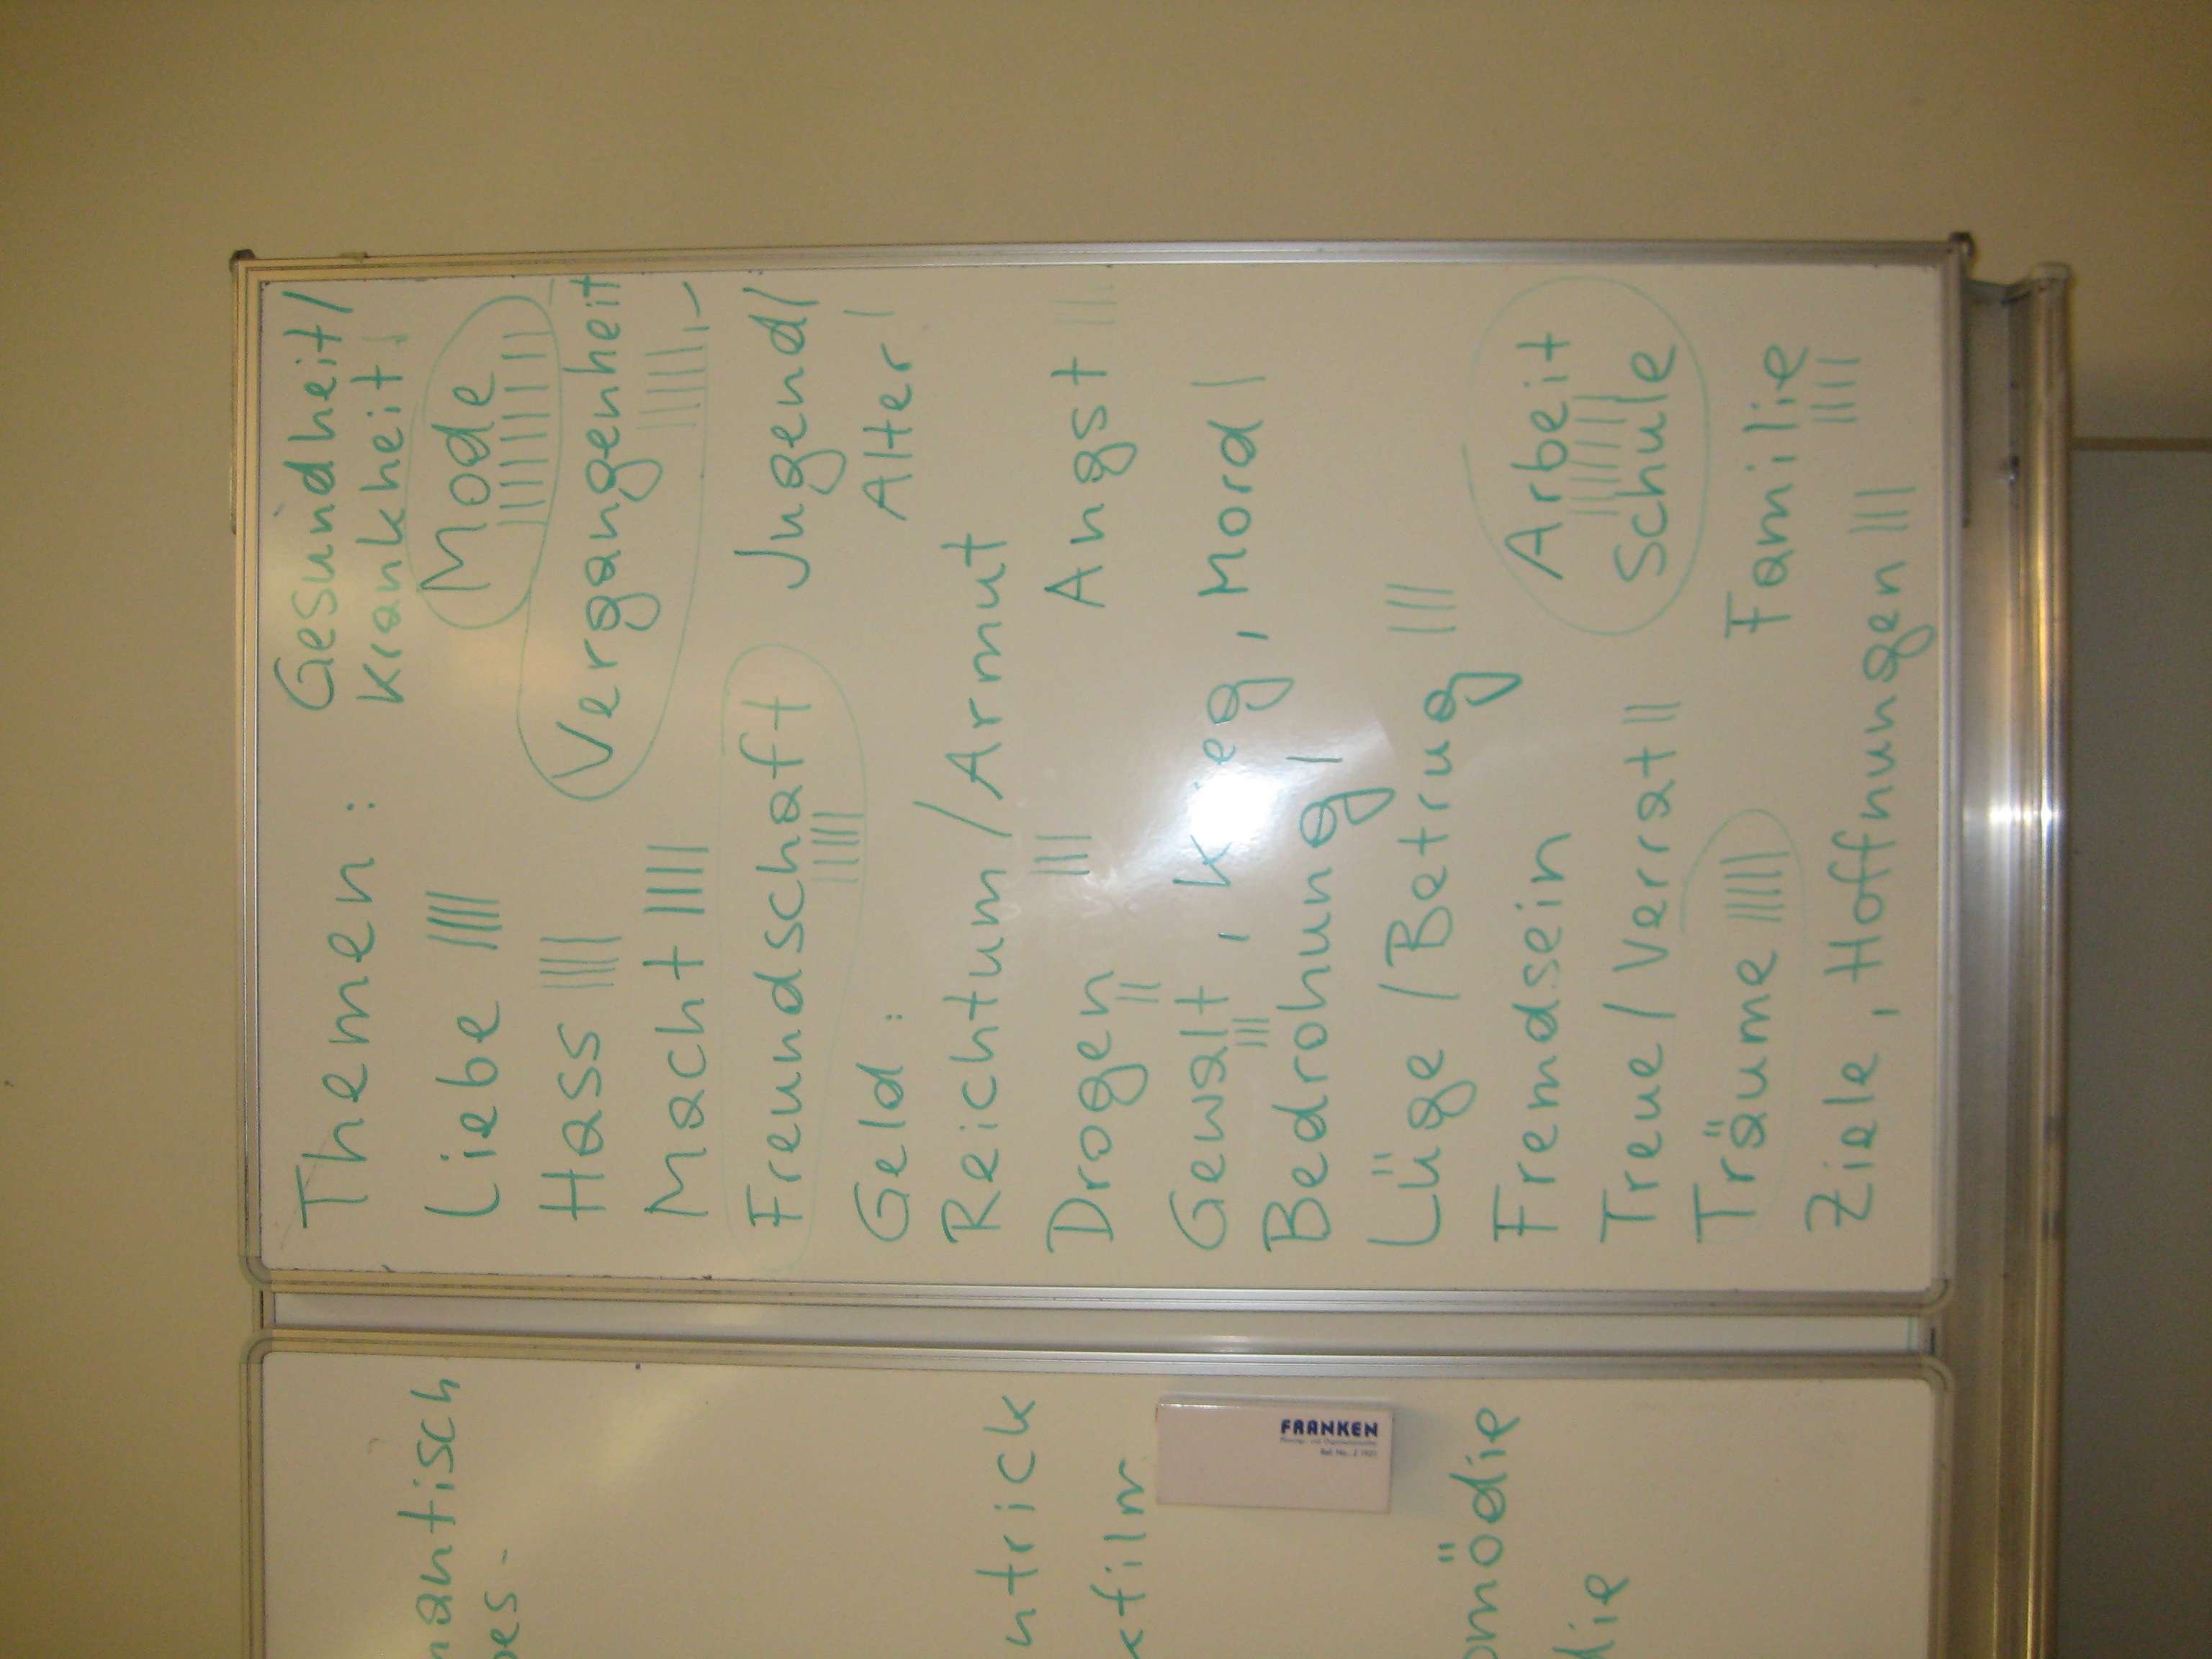 Themen:
Liebe ||||
Hass ||||
Macht ||||
Freundschaft
|||||
Geld:
Reichtum / Armut
|||
Drogen
||
Gewalt, Krieg, Mord |
|||
Bedrohung |
Lüge / Betrug |||
Fremdsein
Treue / Verrat ||
Träume |||||
Ziele, Hoffnungen |||
Gesundheit/
Krankheit |
Mode
Vergangenheit
Jugend/
Alter |
Angst |||
Arbeit
Schule
Familie
||||
mantisch
ntrick
film
omödie
die
FRANKEN